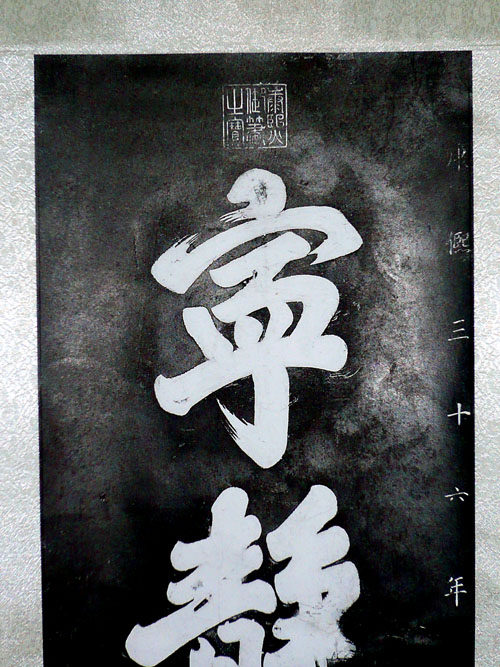 康熙三十六年
康熙御筆之寶
寧靜